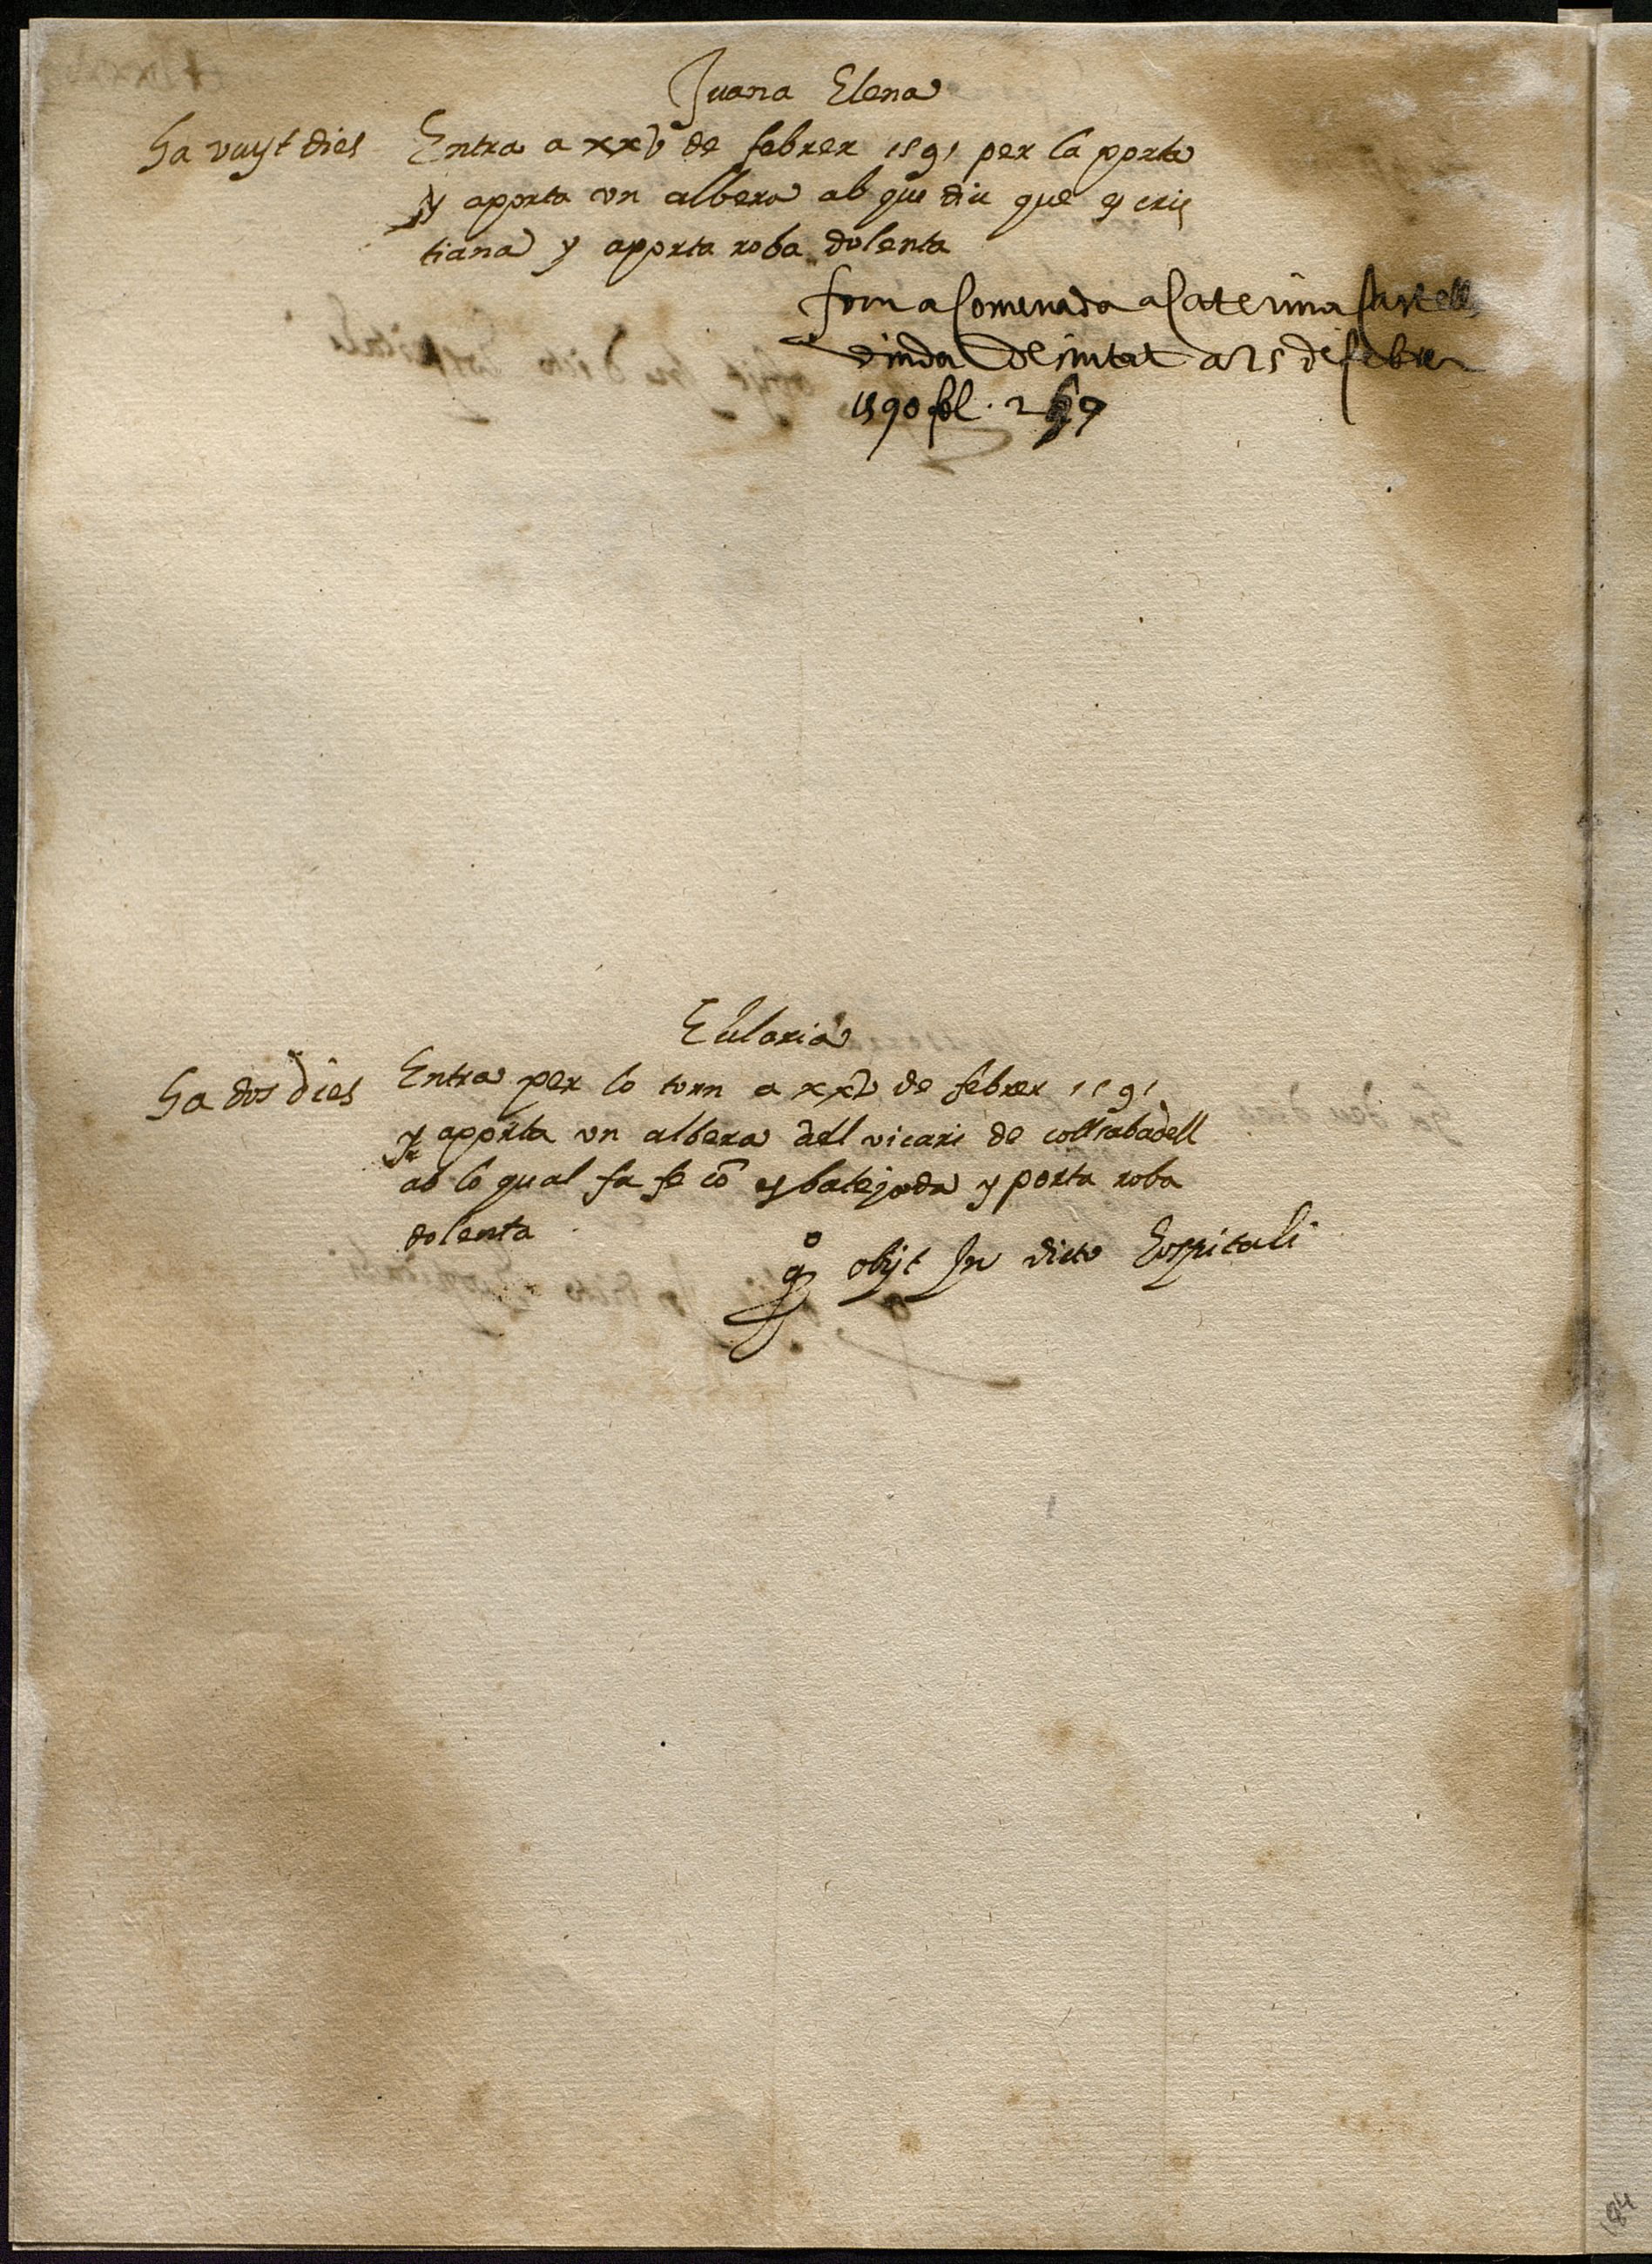 Juana Elena
ha vuyt dies
Entra a xxv de febrer 1591 per la porta
y aporta vn albera ab que diu que es cris
tiana y aporta roba dolenta
fou acomenada a Caterina Castell
viuda de siutat a 25 de febrer
1590 fol. 2
Eularia
ha dos dies
Entra per lo torn a xxv de febrer 1591
y aporta vn albera dell vicari de collsabadell
ab lo qual fa fe cō es batejada y porta roba
dolenta
obijt In dicto hospitali
184